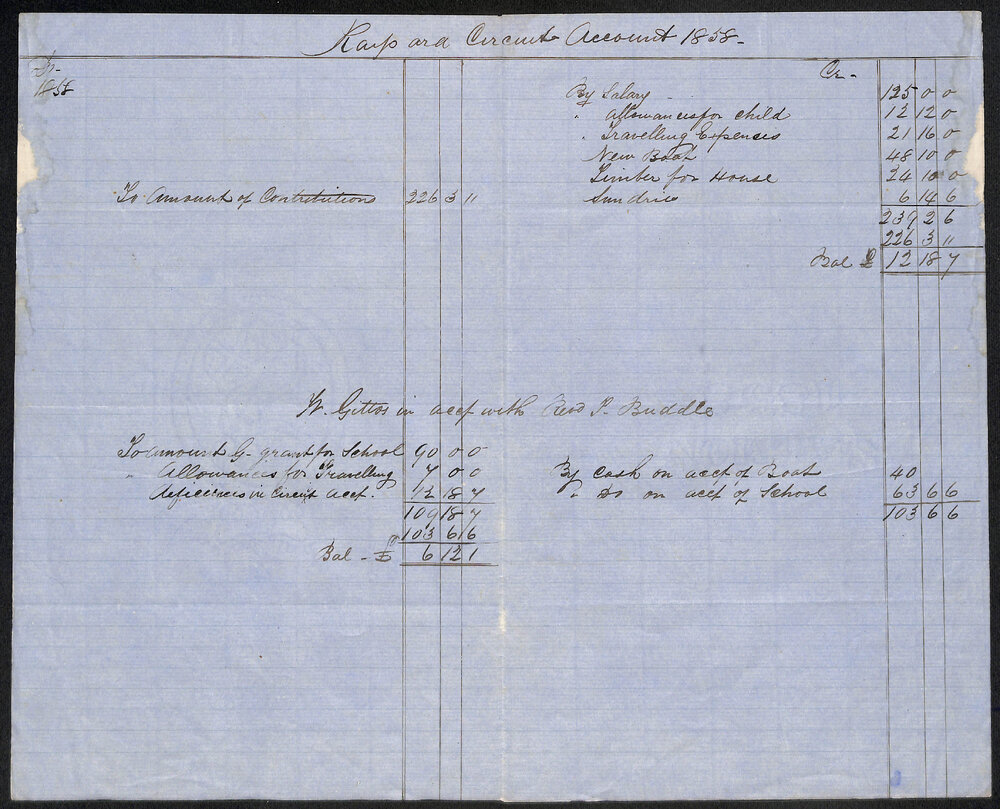 Kaipara Circuit Account 1858-
Dr- Cr-
1858
By Salary 125 0 0
" Allowances for child 12 12 0
" Travelling Expences 21 16 0
New Boat 48 10 0
Timber for House 24 10 0
To Amount of Contributions 226 3 11 Sundries 6 14 6
239 2 6
226 3 11
Bal £ 12 18 7
W. Gittos in acct with Revd J. Buddle
To amount G- grant for School 90 0 0
" Allowances for Travelling 7 0 0 By cash on acct of Boat 40
deficiencies in Circuit acct. 12 18 7 " Do on acct of School 63 6 6
109 18 7 103 6 6
103 6 6
Bal - £ 6 12 1